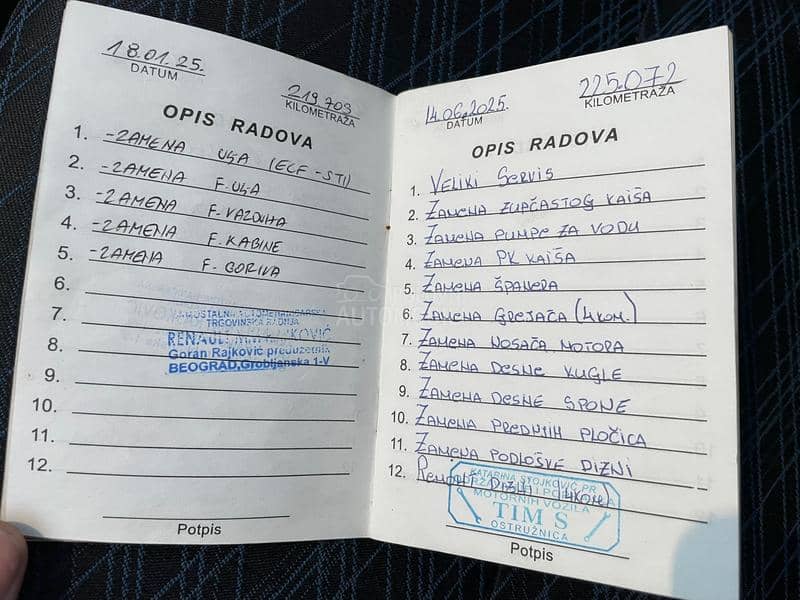 18.01.25.
DATUM
219 709
KILOMETRAŽA
OPIS RADOVA
1. -ZAMENA ULJA (ELF-STI)
2. -ZAMENA F. ULJA
3. -ZAMENA F. VAZDUHA
4. -ZAMENA F. KABINE
5. -ZAMENA F. GORIVA
6.
7.
8.
9.
10.
11.
12.
SAMOSTALNA AUTOMEHANIČARSKA
TRGOVINSKA RADNJA
RENAULT
Goran Rajković preduzetnik
BEOGRAD, Grobljanska 1-V
Potpis
14.06.2025.
DATUM
225.072
KILOMETRAŽA
OPIS RADOVA
1. VELIKI SERVIS
2. ZAMENA ZUPČASTOG KAIŠA
3. ZAMENA PUMPE ZA VODU
4. ZAMENA PK KAIŠA
5. ZAMENA ŠPANERA
6. ZAMENA GREJAČA (4KOM.)
7. ZAMENA NOSAČA MOTORA
8. ZAMENA DESNE KUGLE
9. ZAMENA DESNE SPONE
10. ZAMENA PREDNJIH PLOČICA
11. ZAMENA PODLOŠKE DIZNI
12. REMONT DIZNI (4KOM)
KATARINA STOJKOVIĆ PR
MOTORNIH VOZILA
TIM S
OSTRUŽNICA
Potpis